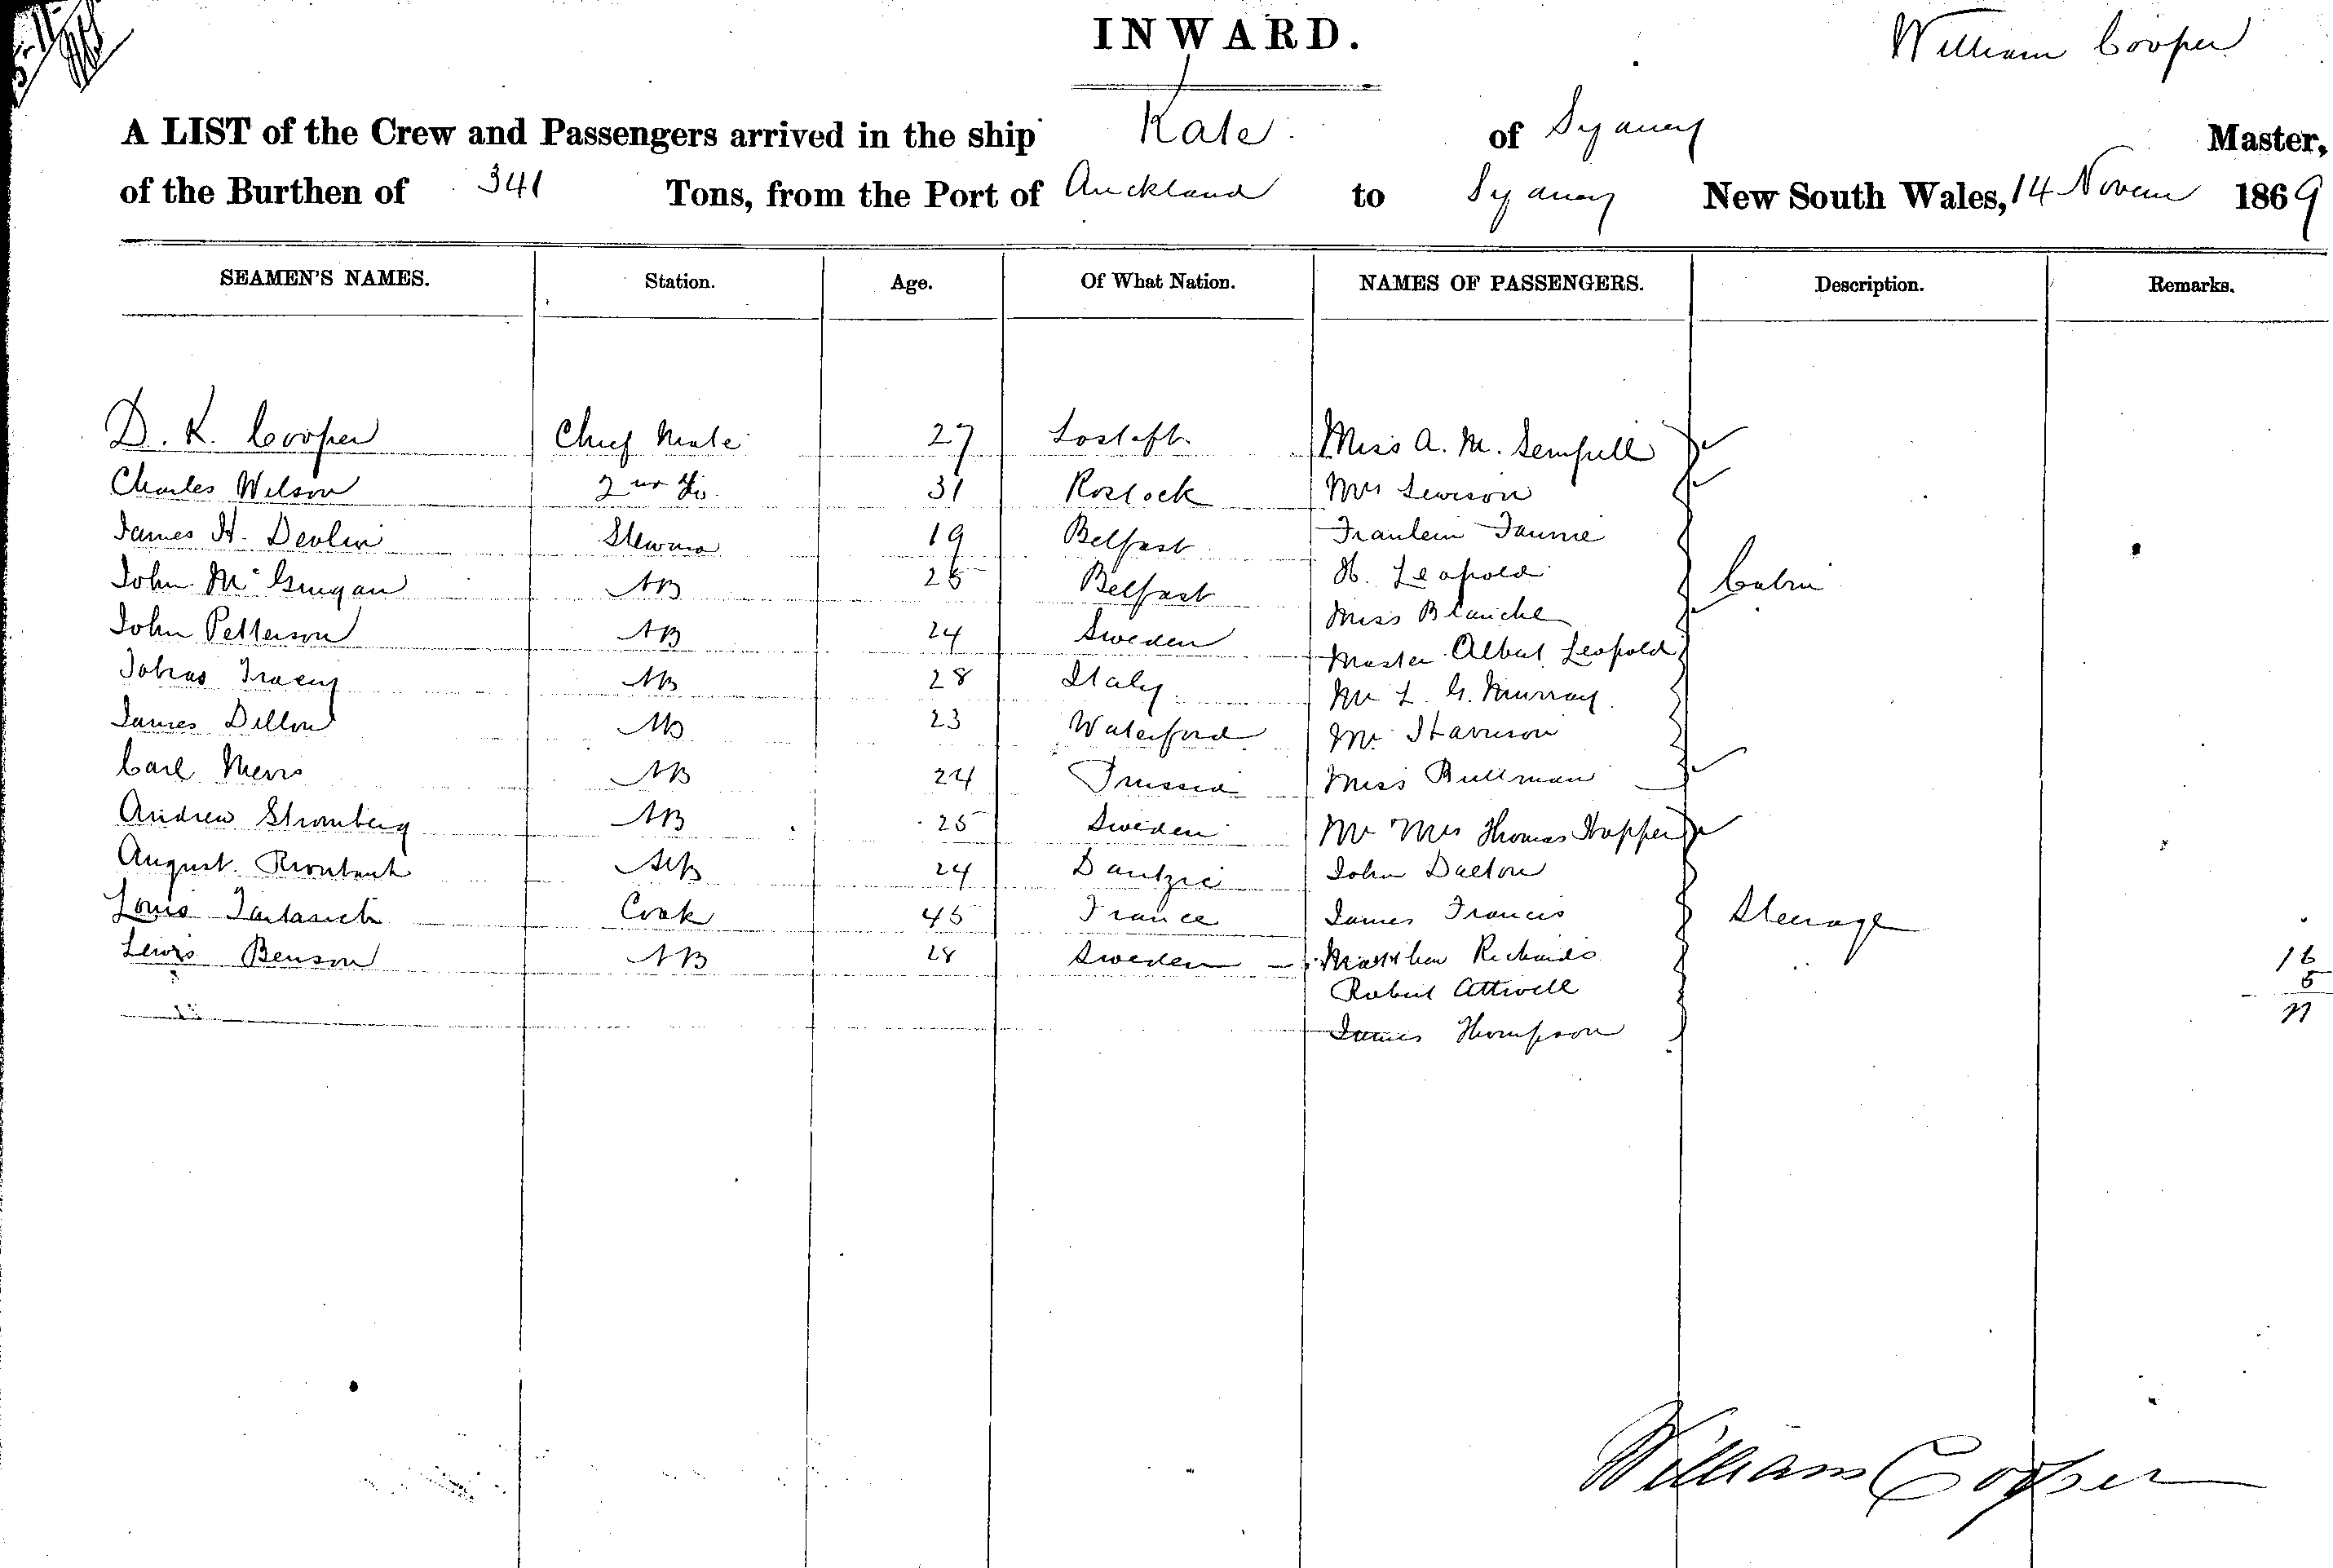 INWARD.
William Cooper
A LIST of the Crew and Passengers arrived in the ship Kate of Sydney Master,
of the Burthen of 341 Tons, from the Port of Auckland to Sydney New South Wales, 14 Novem 1869
SEAMEN'S NAMES. Station. Age. Of What Nation. NAMES OF PASSENGERS. Description. Remarks.
D. K. Cooper Chief Mate 27 Miss A. M. Sempill
Charles Wilson 2nd Do. 31 Rostock Mrs
James H. Devlin Steward 19 Belfast Fraulein Fannie
John McGuigan AB 25 Belfast H. Leopold Cabin
John Petterson AB 24 Sweden Miss Blanche
Tobias AB 28 Italy Master Albert Leopold
James Dillon AB 23 Waterford Mr L. G. Murray
Carl AB 24 Prussia Mr Harrison
Andrew Stromberg AB 25 Sweden Miss Bullman
August AB 24 Dantzic Mr Mrs Thomas Hopper
Louis Cook 45 France John Dalton
Lewis Benson AB 28 Sweden James Francis Steerage
Matthew Richards 16
Robert Attwell 5
James Thompson
William Cooper